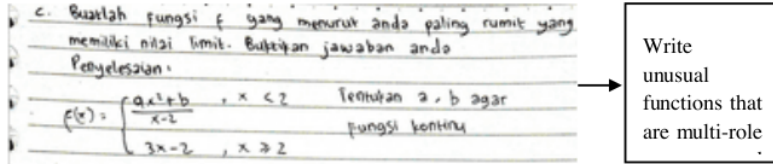 c. Buatlah fungsi f yang menurut anda paling rumit yang
memiliki nilai limit. Buktikan jawaban anda
Penyelesaian:
f(x) = { ax²+b / x-2 , x < 2
3x-2 , x ≥ 2
Tentukan a, b agar
fungsi kontinu
Write
unusual
functions that
are multi-role
.